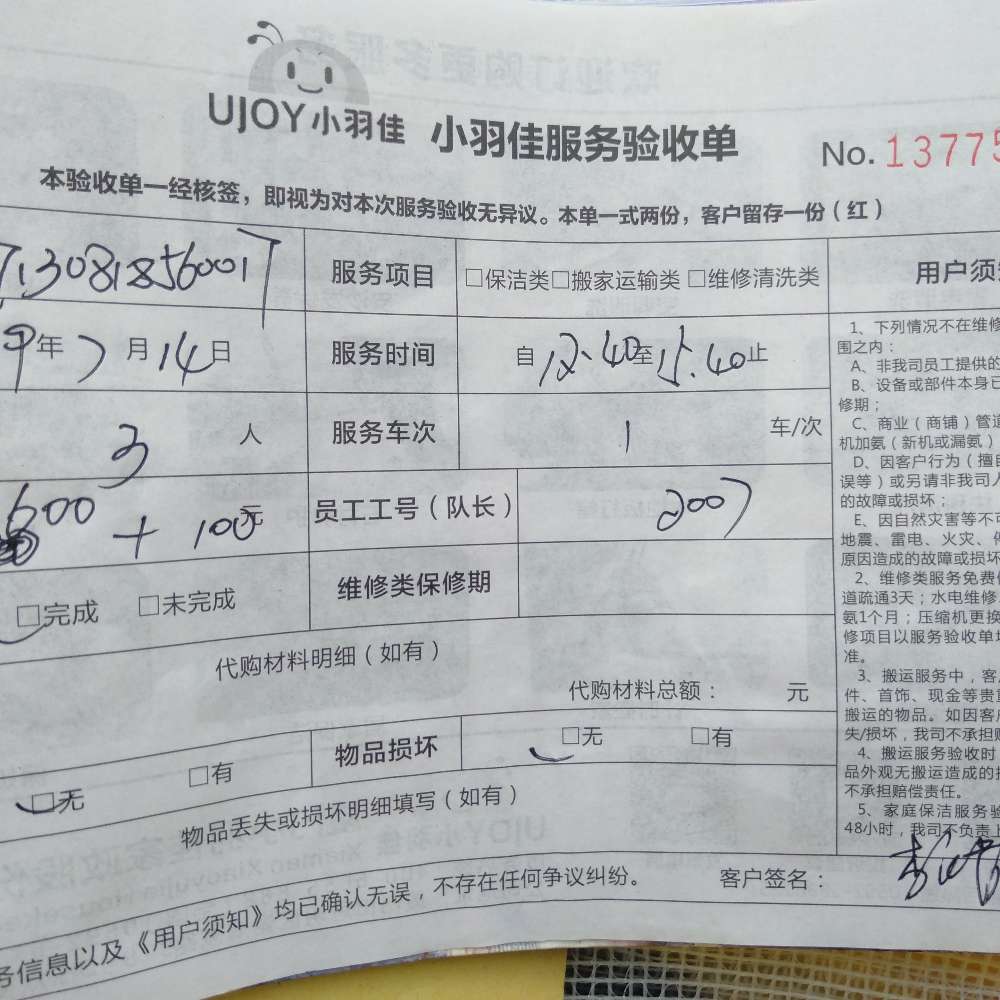 UJOY小羽佳 小羽佳服务验收单 No. 13775
本验收单一经核签，即视为对本次服务验收无异议。本单一式两份，客户留存一份（红）
服务项目 □保洁类□搬家运输类□维修清洗类
年 7 月 14 日 服务时间 自 12.40 至 15.40 止
3 人 服务车次 1 车/次
600 + 100元 员工工号（队长） 2007
□完成 □未完成 维修类保修期
代购材料明细（如有）
代购材料总额： 元
□无 □有 物品损坏 □无 □有
物品丢失或损坏明细填写（如有）
务信息以及《用户须知》均已确认无误，不存在任何争议纠纷。 客户签名：
用户须
1、下列情况不在维修
围之内：
A、非我司员工提供的
B、设备或部件本身已
修期；
C、商业（商铺）管道
机加氨（新机或漏氨）
D、因客户行为（擅自
误等）或另请非我司人
的故障或损坏；
E、因自然灾害等不可
地震、雷电、火灾、停
原因造成的故障或损坏
2、维修类服务免费保
道疏通3天；水电维修
氨1个月；压缩机更换
修项目以服务验收单
准。
3、搬运服务中，客户
件、首饰、现金等贵重
搬运的物品。如因客户
失/损坏，我司不承担
4、搬运服务验收时
品外观无搬运造成的
不承担赔偿责任。
5、家庭保洁服务验
48小时，我司不负责上